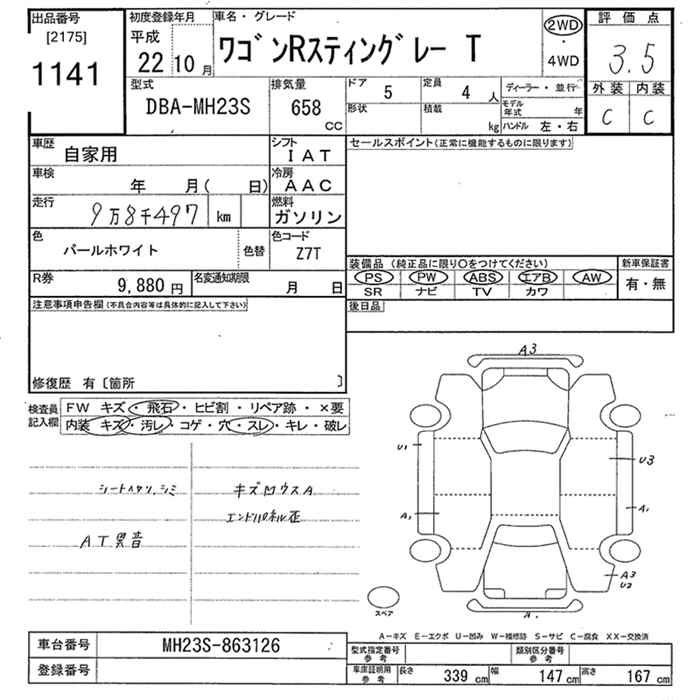 出品番号
[2175]
1141
初度登録年月
平成
22 10 月
車名・グレード
ワゴンRスティングレー T
2WD
・
4WD
評価点
3.5
外装 内装
C C
型式
DBA-MH23S
排気量
658
CC
ドア
5
定員
4 人
形状
積載
kg
ディーラー・並行
モデル年式 年
ハンドル 左・右
車歴
自家用
シフト
IAT
車検
年 月( 日)
冷房
AAC
走行
9万8千497 km
燃料
ガソリン
色
パールホワイト
色替
色コード
Z7T
R券
9,880 円
名変通知期限
月 日
セールスポイント(正常に機能するものに限ります)
装備品 (純正品に限り○をつけてください)
PS PW ABS エアB AW
SR ナビ TV カワ
新車保証書
有・無
後日品
注意事項申告欄(不具合内容等は具体的に記入して下さい)
修復歴 有〔箇所 〕
検査員
記入欄
FW キズ・飛石・ヒビ割・リペア跡・×要
内装 キズ・汚レ・コゲ・穴・スレ・キレ・破レ
シートヘタリ、シミ
AT異音
キズ凹ウスA
エンドパネル歪
A3
U1
U3
A1
A1
A3
U2
A1
スペア
A-キズ E-エクボ U-凹み W-補修跡 S-サビ C-腐食 XX-交換済
車台番号
MH23S-863126
登録番号
型式指定番号
参考
類別区分番号
参考
車庫証明用
参考
長さ 339 cm
幅 147 cm
高さ 167 cm